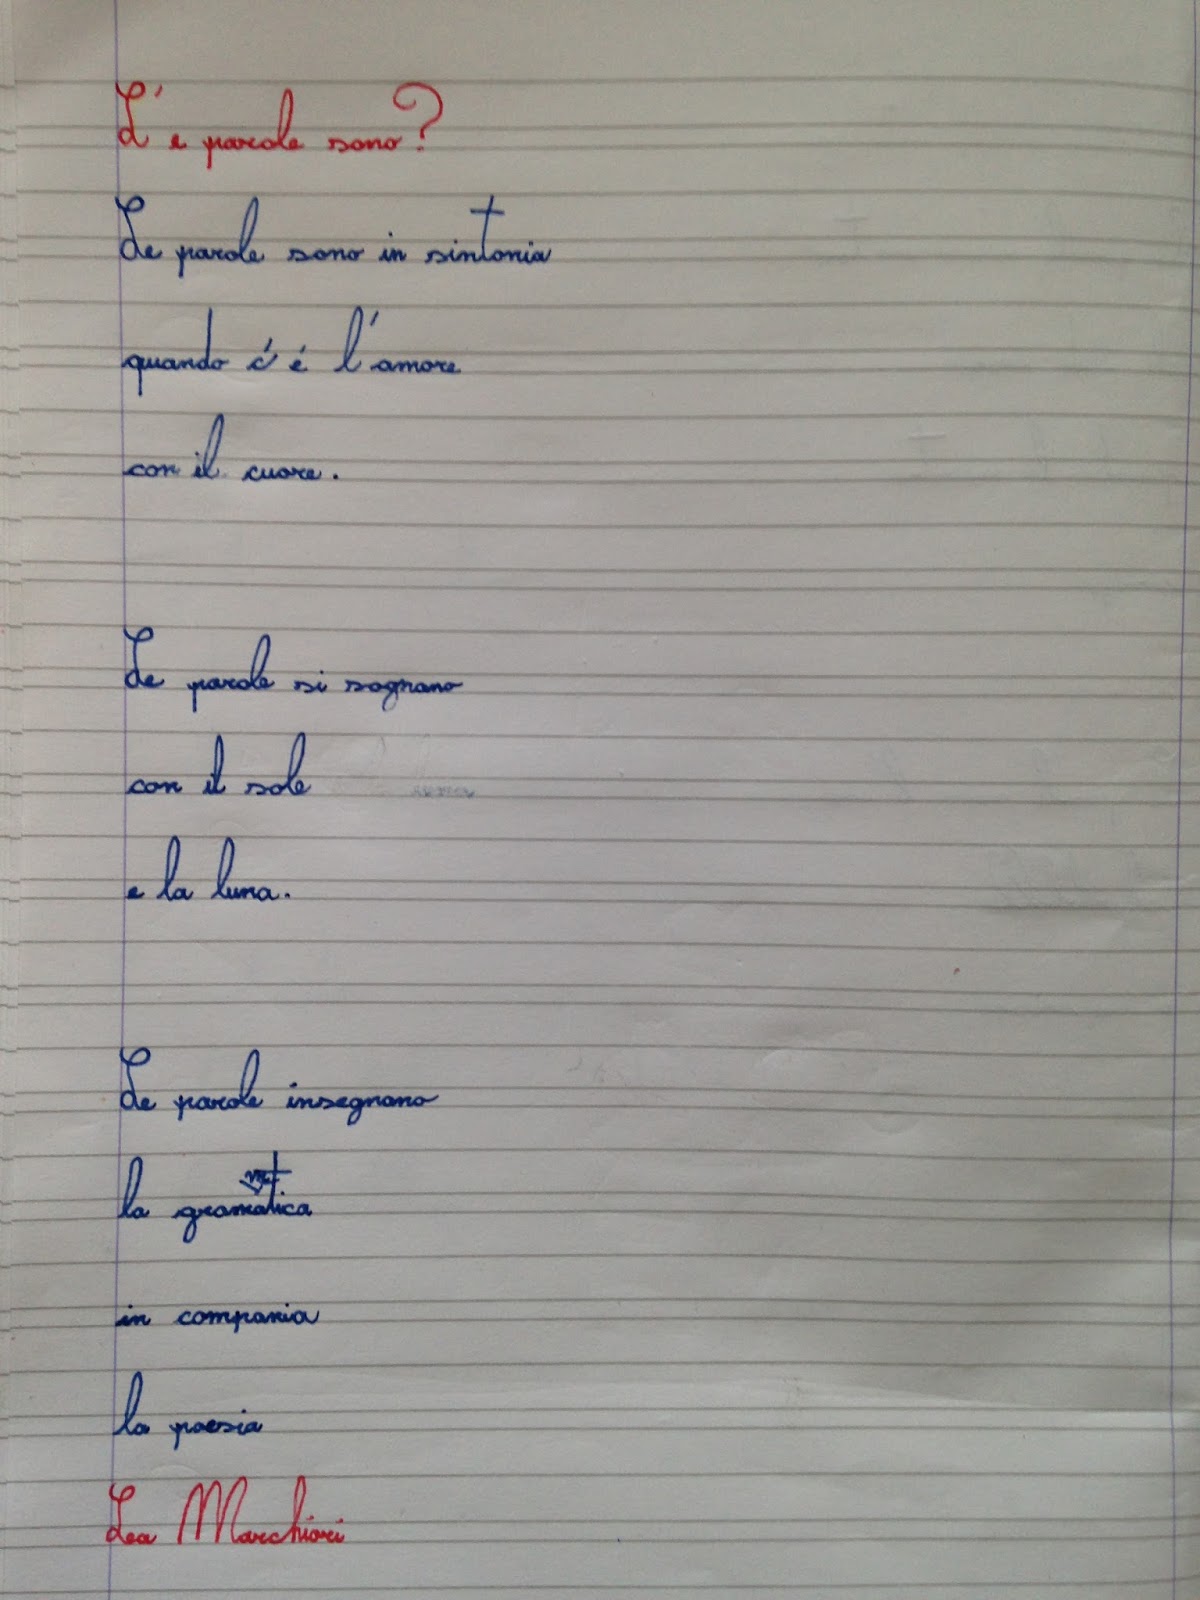 L'e parole sono?
Le parole sono in sintonia
quando c'é l'amore
con il cuore.
Le parole si sognano
con il sole
e la luna.
Le parole insegnano
la gramatica
in compania
la poesia
Lea Marchiori